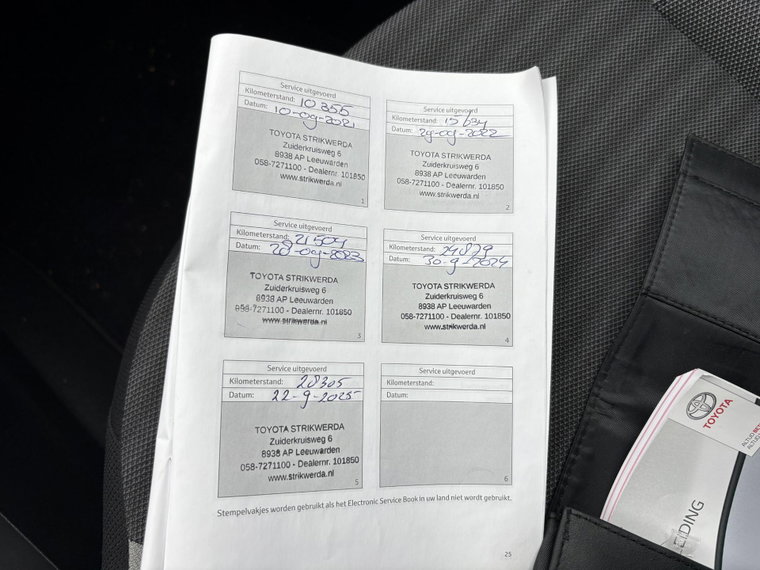 Service uitgevoerd
Kilometerstand: 10355
Datum: 10-09-2021
TOYOTA STRIKWERDA
Zuiderkruisweg 6
8938 AP Leeuwarden
058-7271100 - Dealernr. 101850
www.strikwerda.nl
1
Service uitgevoerd
Kilometerstand: 15634
Datum: 29-09-2022
TOYOTA STRIKWERDA
Zuiderkruisweg 6
8938 AP Leeuwarden
058-7271100 - Dealernr. 101850
www.strikwerda.nl
2
Service uitgevoerd
Kilometerstand: 21504
Datum: 28-09-2023
TOYOTA STRIKWERDA
Zuiderkruisweg 6
8938 AP Leeuwarden
058-7271100 - Dealernr. 101850
www.strikwerda.nl
3
Service uitgevoerd
Kilometerstand: 24829
Datum: 30-9-2024
TOYOTA STRIKWERDA
Zuiderkruisweg 6
8938 AP Leeuwarden
058-7271100 - Dealernr. 101850
www.strikwerda.nl
4
Service uitgevoerd
Kilometerstand: 28305
Datum: 22-9-2025
TOYOTA STRIKWERDA
Zuiderkruisweg 6
8938 AP Leeuwarden
058-7271100 - Dealernr. 101850
www.strikwerda.nl
5
Service uitgevoerd
Kilometerstand:
Datum:
6
Stempelvakjes worden gebruikt als het Electronic Service Book in uw land niet wordt gebruikt.
25
TOYOTA
EIDING